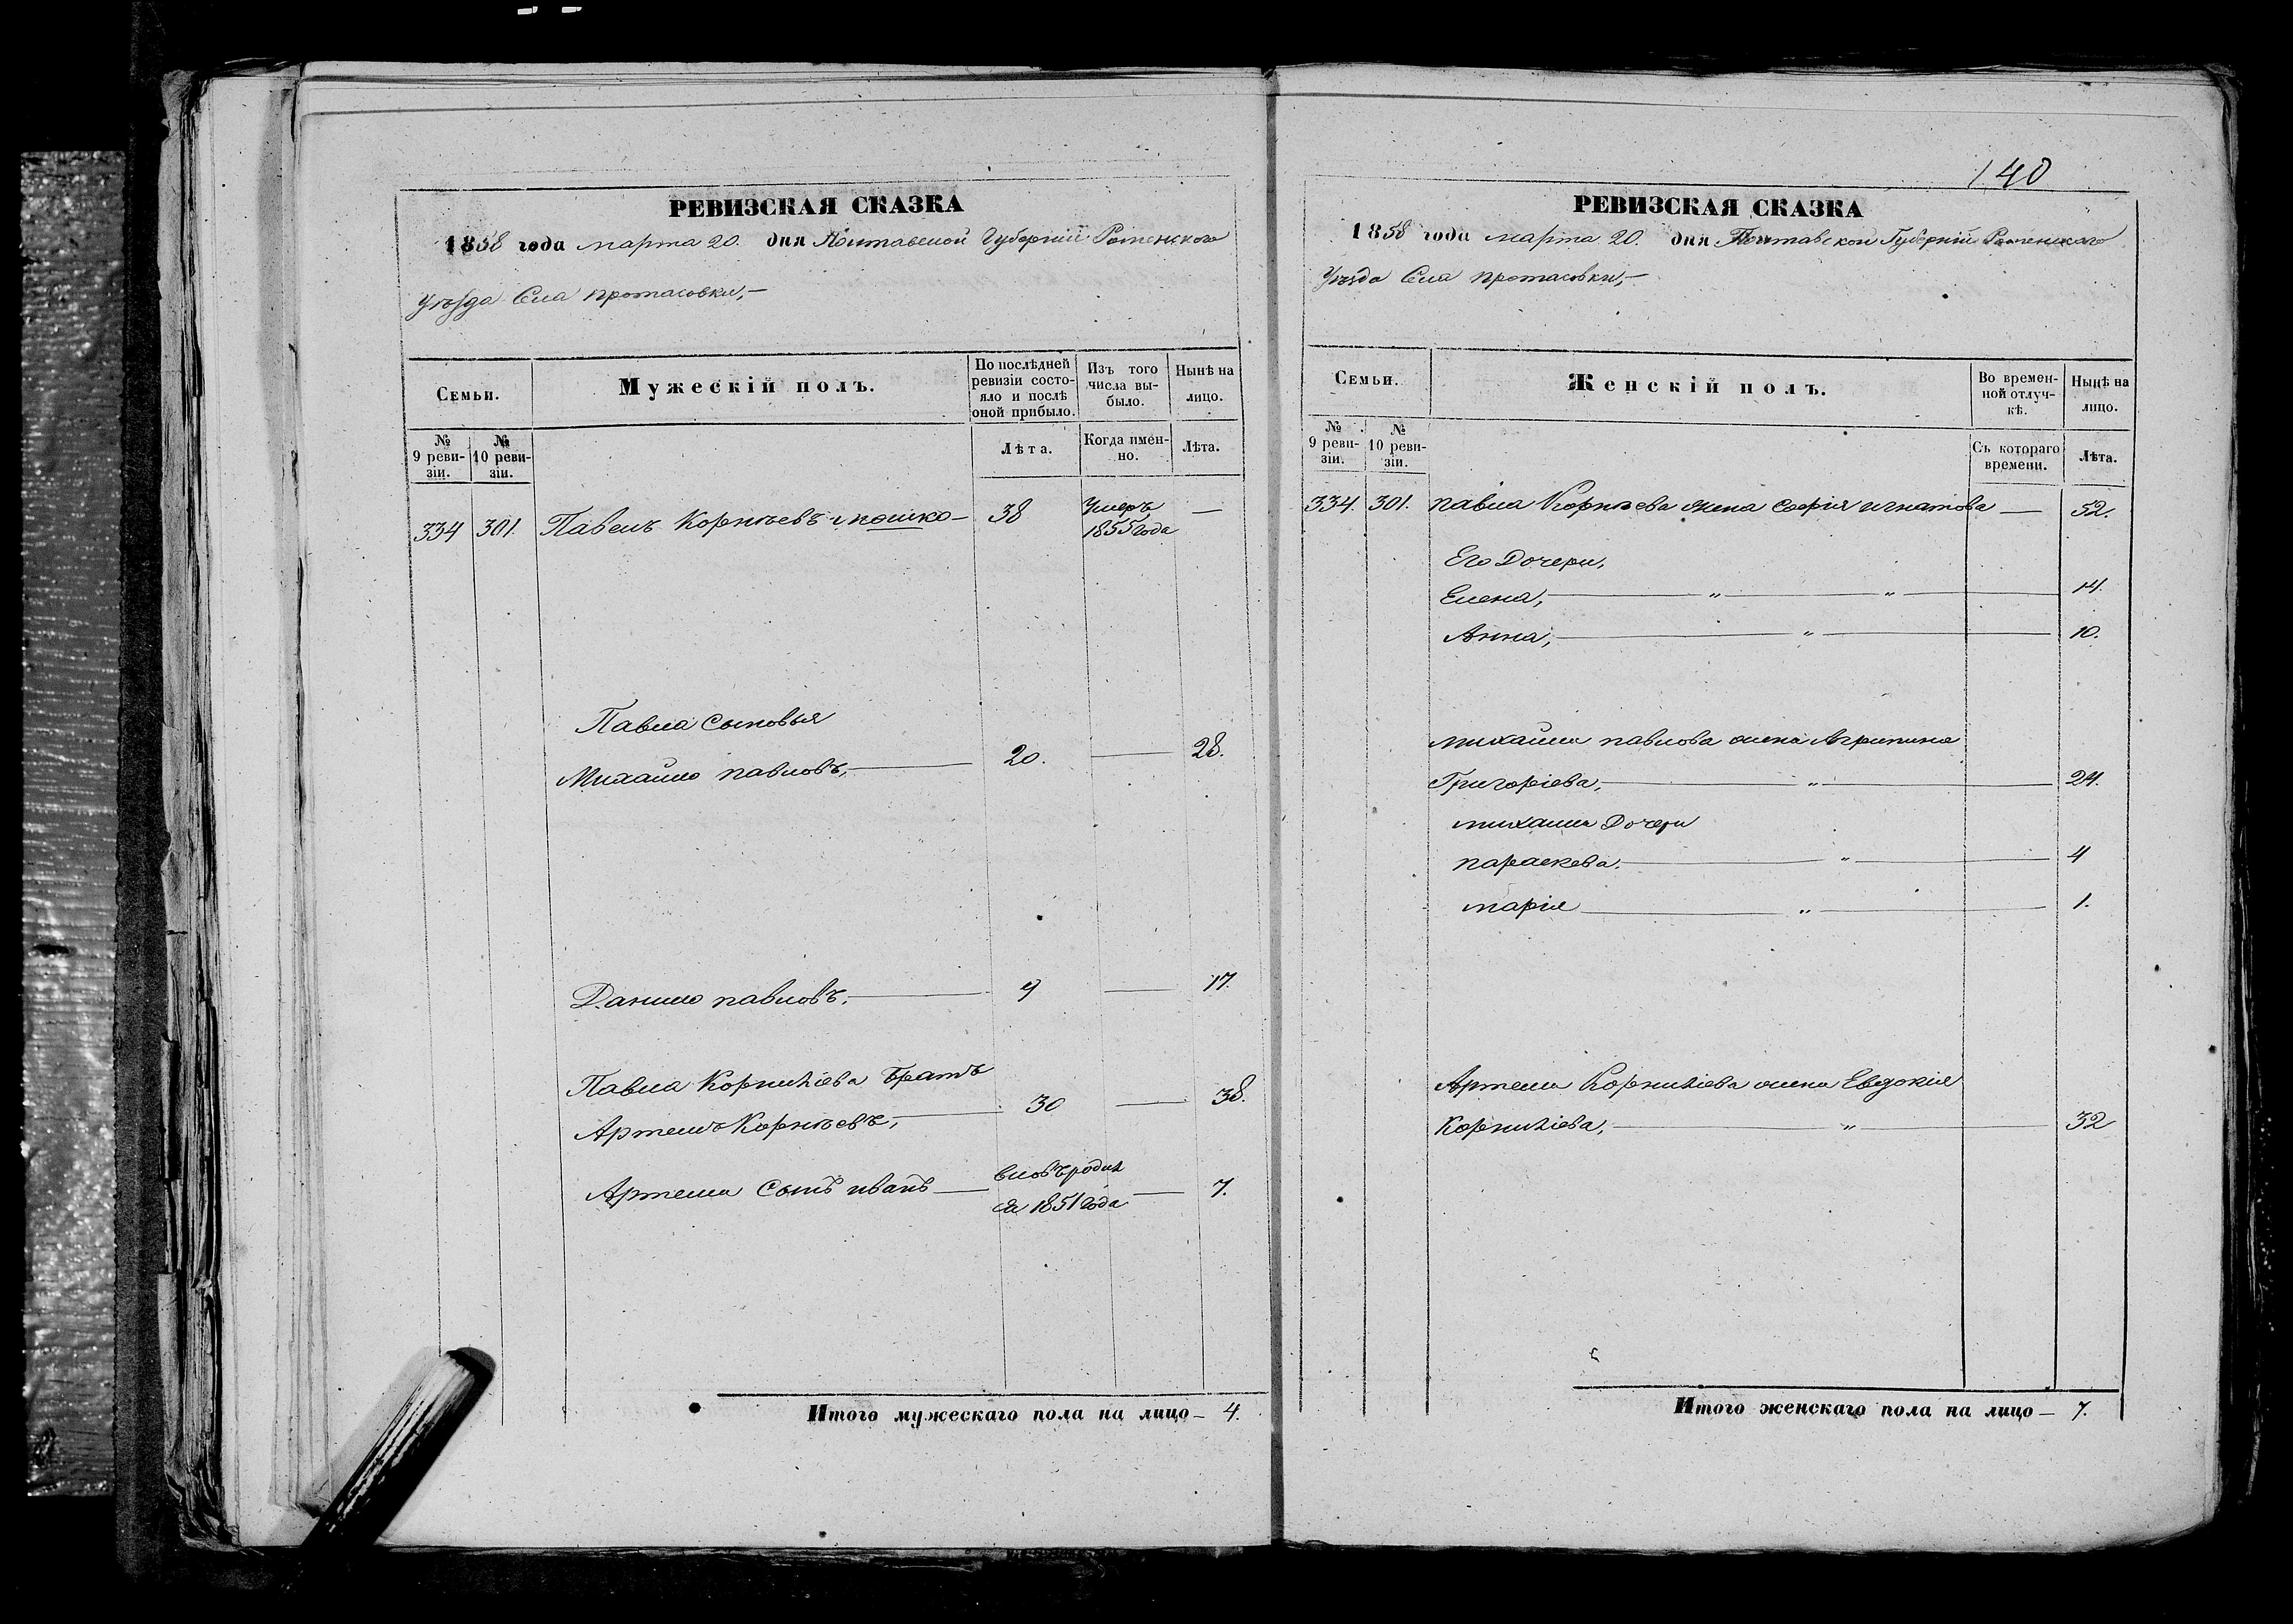 РЕВИЗСКАЯ СКАЗКА
1858 года марта 20. дня Полтавской Губерніи Роменского
Уѣзда Села протасовки,—
Семьи.
Мужескій полъ.
По послѣдней ревизіи состояло и послѣ оной прибыло.
Изъ того числа выбыло.
Нынѣ на лицо.
№ 9 ревизіи.
№ 10 ревизіи.
Лѣта.
Когда именно.
Лѣта.
334 301. Павелъ Корнѣевъ 38 Умеръ 1855 года —
Павла Сыновья
Михайло павловъ, 20. — 28.
Данило павловъ. 9 — 17.
Павла Корниліева Братъ
Артемъ Корнѣевъ, 30 — 38.
Артема Сынъ иванъ — вновь родил
ся 1851 года — 7.
Итого мужескаго пола на лицо — 4.
140
РЕВИЗСКАЯ СКАЗКА
1858 года марта 20. дня Полтавской Губерніи Роменского
Уѣзда Села протасовки,—
Семьи.
Женскій полъ.
Во временной отлучкѣ.
Нынѣ на лицо.
№ 9 ревизіи.
№ 10 ревизіи.
Съ котораго времени.
Лѣта.
334. 301. павла Корнѣева жена софія игнатова — 52.
Его Дочери,
Елена, " " 14.
Анна, " 10.
михайла павлова жена Агрипина
Григоріева, " 24.
михаила Дочери
параскева. " 4
марія " 1.
Артема Корниліева жена Евдокія
Корниліева, " 32
Итого женскаго пола на лицо — 7.